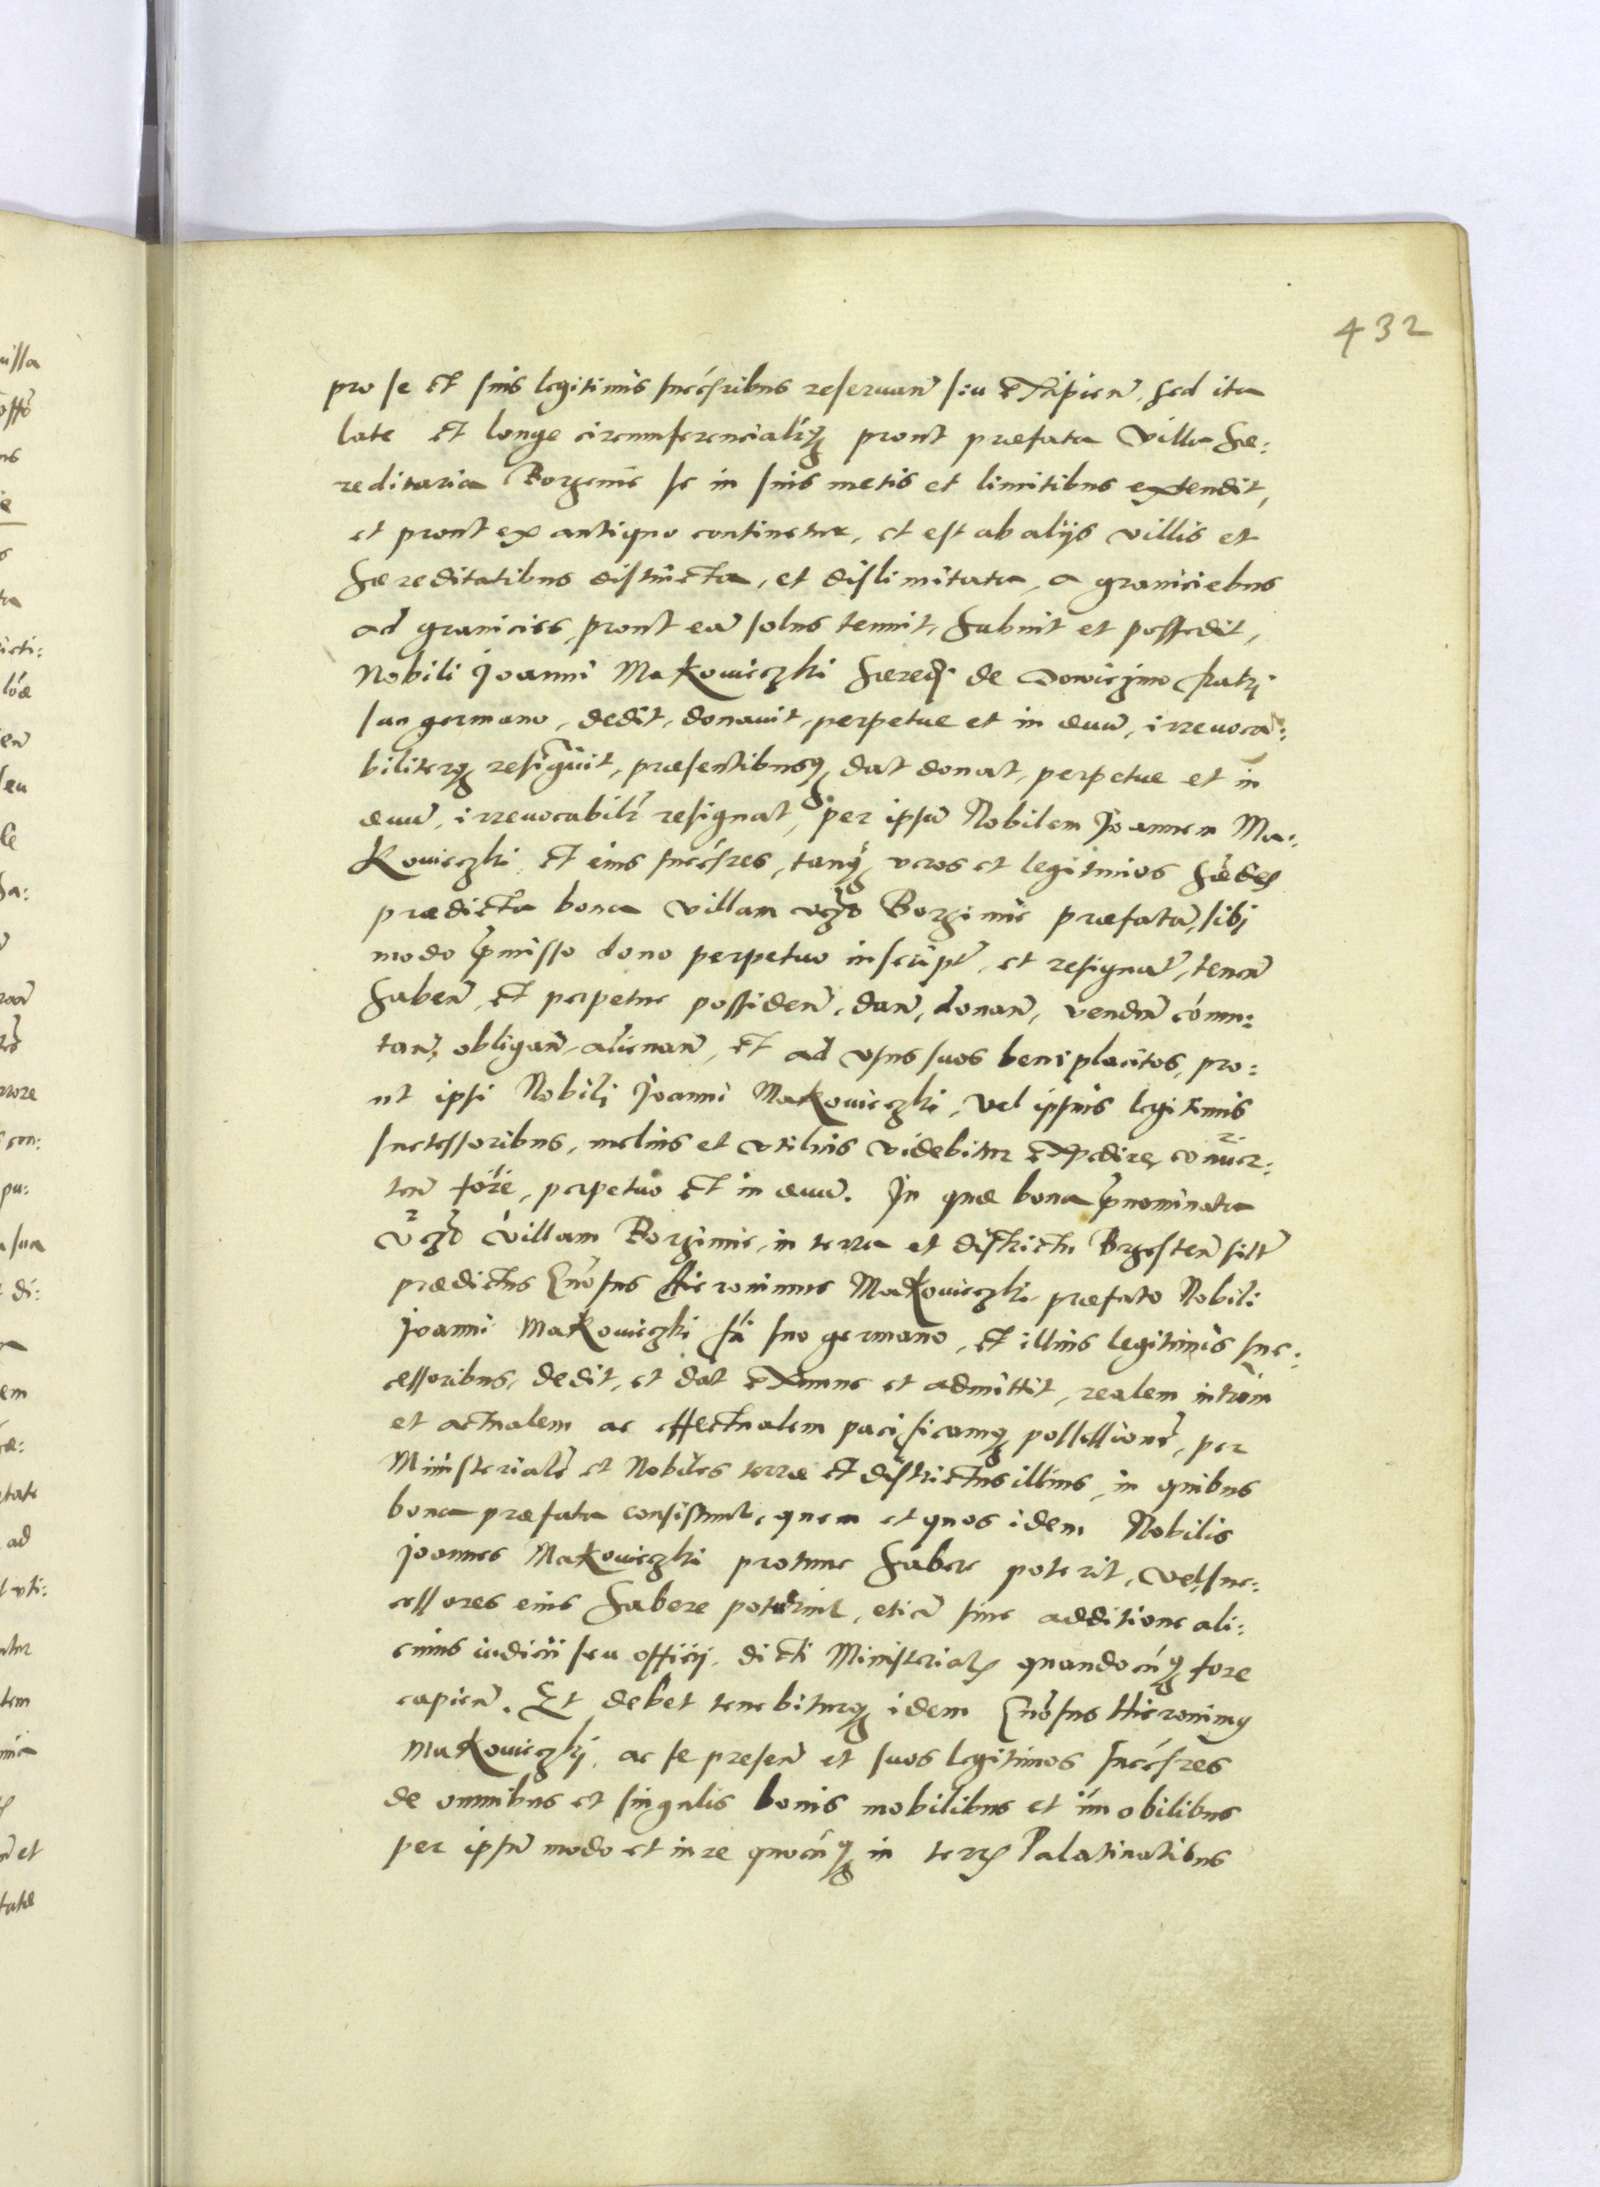 432
pro se et suis legitimis succ̃sribus reseruan̄ seu excipien̄, sed ita
late et longe circumferencialr̃qꝫ prout præfata villa hæ:
reditaria Borzimie se in suis metis et limitibus extendit,
et prout ex antiquo continetur, et est ab alijs villis et
hæreditatibus distincta, et dislimitata, a graniciebus
ad granicies, prout eā solus tenuit, habuit et possedit,
Nobili Joanni Makowieczki hæredj de fratrj
suo germano, dedit, donauit, perpetue et in æuū, irreuoca:
biliterqꝫ resignauit, præsentibusqꝫ dat donat, perpetue et in
æuū, irreuocabilr̃ resignat, per ipsū Nobilem Joannem Ma:
kowieczki et eius succ̃sres, tanqꝫ veros et legitimos hæ̃des
prædicta bona villam vczꝭ Borzimie præfatā, sibj
modo p̃misso dono perpetuo inscript̃, et resignat̃, tenen̄
haben̄, et perpetue possiden̄, dan̄, donan̄, venden̄ cõmu:
tan̄, obligan̄, alienan̄, et ad vsus suos beneplacitos, pro:
ut ipsi Nobilj Joanni Makowieczki, vel ipsius legitimis
successoribus, melius et vtilius videbitur expedire, conuer:
ten̄ fore, perpetuo et in æuū. In quæ bona p̃nominata
vczꝭ villam Borzimie, in terra et districtu Brzesten̄ sitã
prædictus Gñosus Hieronimus Makowieczki præfato Nobili
Joanni Makowieczki frĩ suo germano, et illius legitimis suc:
cessoribus, dedit, et dat extunc et admittit, realem intrõm
et actualem ac effectualem pacificamqꝫ possessionẽ, per
Ministerialẽ et Nobiles terræ et districtus illius, in quibus
bona præfata consistunt, quem et quos idem Nobilis
Joannes Makowieczki protunc habere poterit, vel suc:
cessores eius habere poterint, etiã sine additione ali:
cuius iudicij seu officij, dicti Ministerialꝭ quandocũqꝫ fore
capien̄. Et debet tenebiturqꝫ idem Gñosus Hieronimꝰ
Makowieczkj, ac se presen̄ et suos legitimos succ̃sres
de omnibus et singulis bonis mobilibus et im̃obilibus
per ipsū modo et in re quocũqꝫ in terrꝭ Palatinatibus